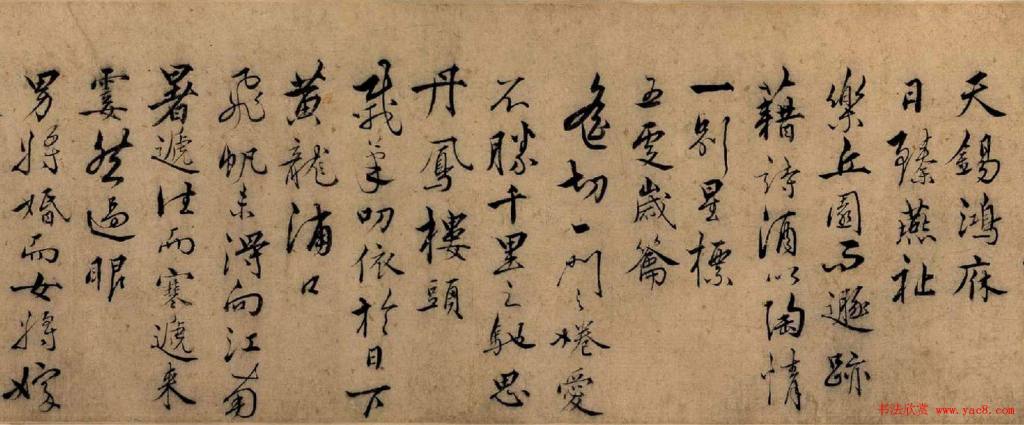 天錫鴻庥
日臻燕祉
樂丘園而遯跡
藉詩酒以陶情
一別星標
五更歲籥
切一門之惓愛
不勝千里之馳思
丹鳳樓頭
載筆叨依於日下
黃龍浦口
飛帆未得向江南
暑遞往而寒遞來
霎然過眼
男將婚而女將嫁
书法欣赏 www.yac8.com